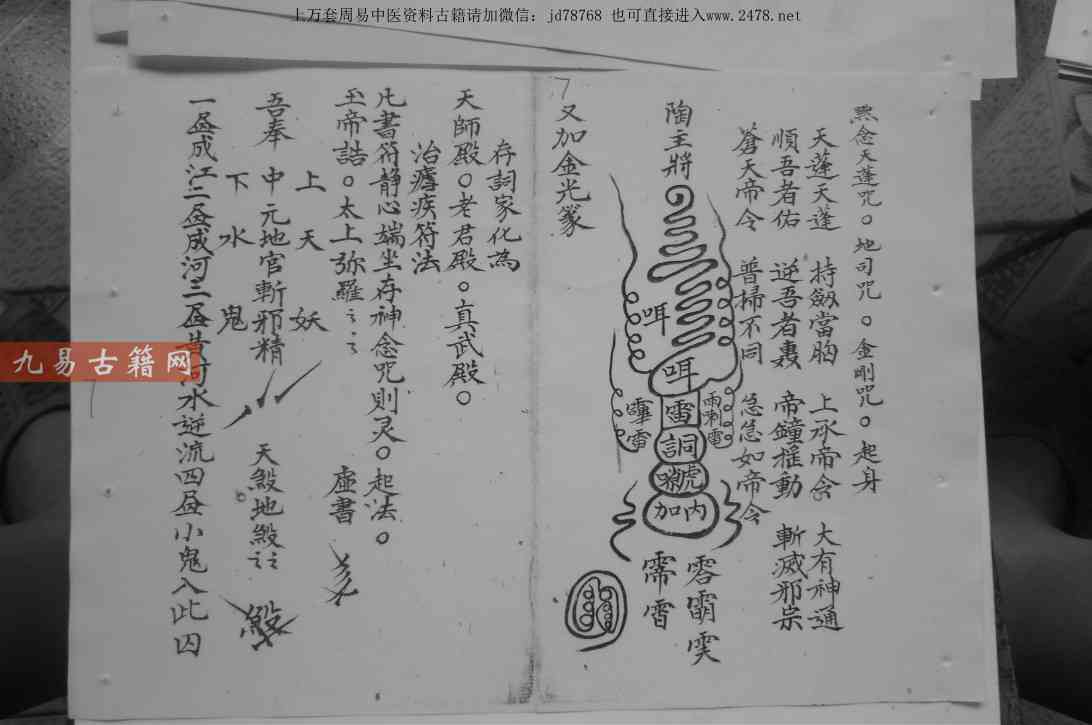 上万套周易中医资料古籍请加微信：jd78768 也可直接进入www.2478.net
九易古籍网
黙念天蓬咒。地司咒。金剛咒。起身
天蓬天蓬 持劔當胸 上承帝令 大有神通
順吾者佑 逆吾者轟 帝鐘搖動 斬滅邪宗
蒼天帝令 普掃不同 急急如帝令
陶主將
咡
咡
雷
詷
虎
加内
又加金光篆
存詞家化為
天師殿。老君殿。真武殿。
治瘧疾符法
凡書符静心端坐存神念咒則灵。起法。
玉帝誥。太上弥羅 虛書
上天妖
吾奉中元地官斬邪精 天殺地殺
下水鬼
一畫成江二畫成河三畫黄河水逆流四畫小鬼入此囚